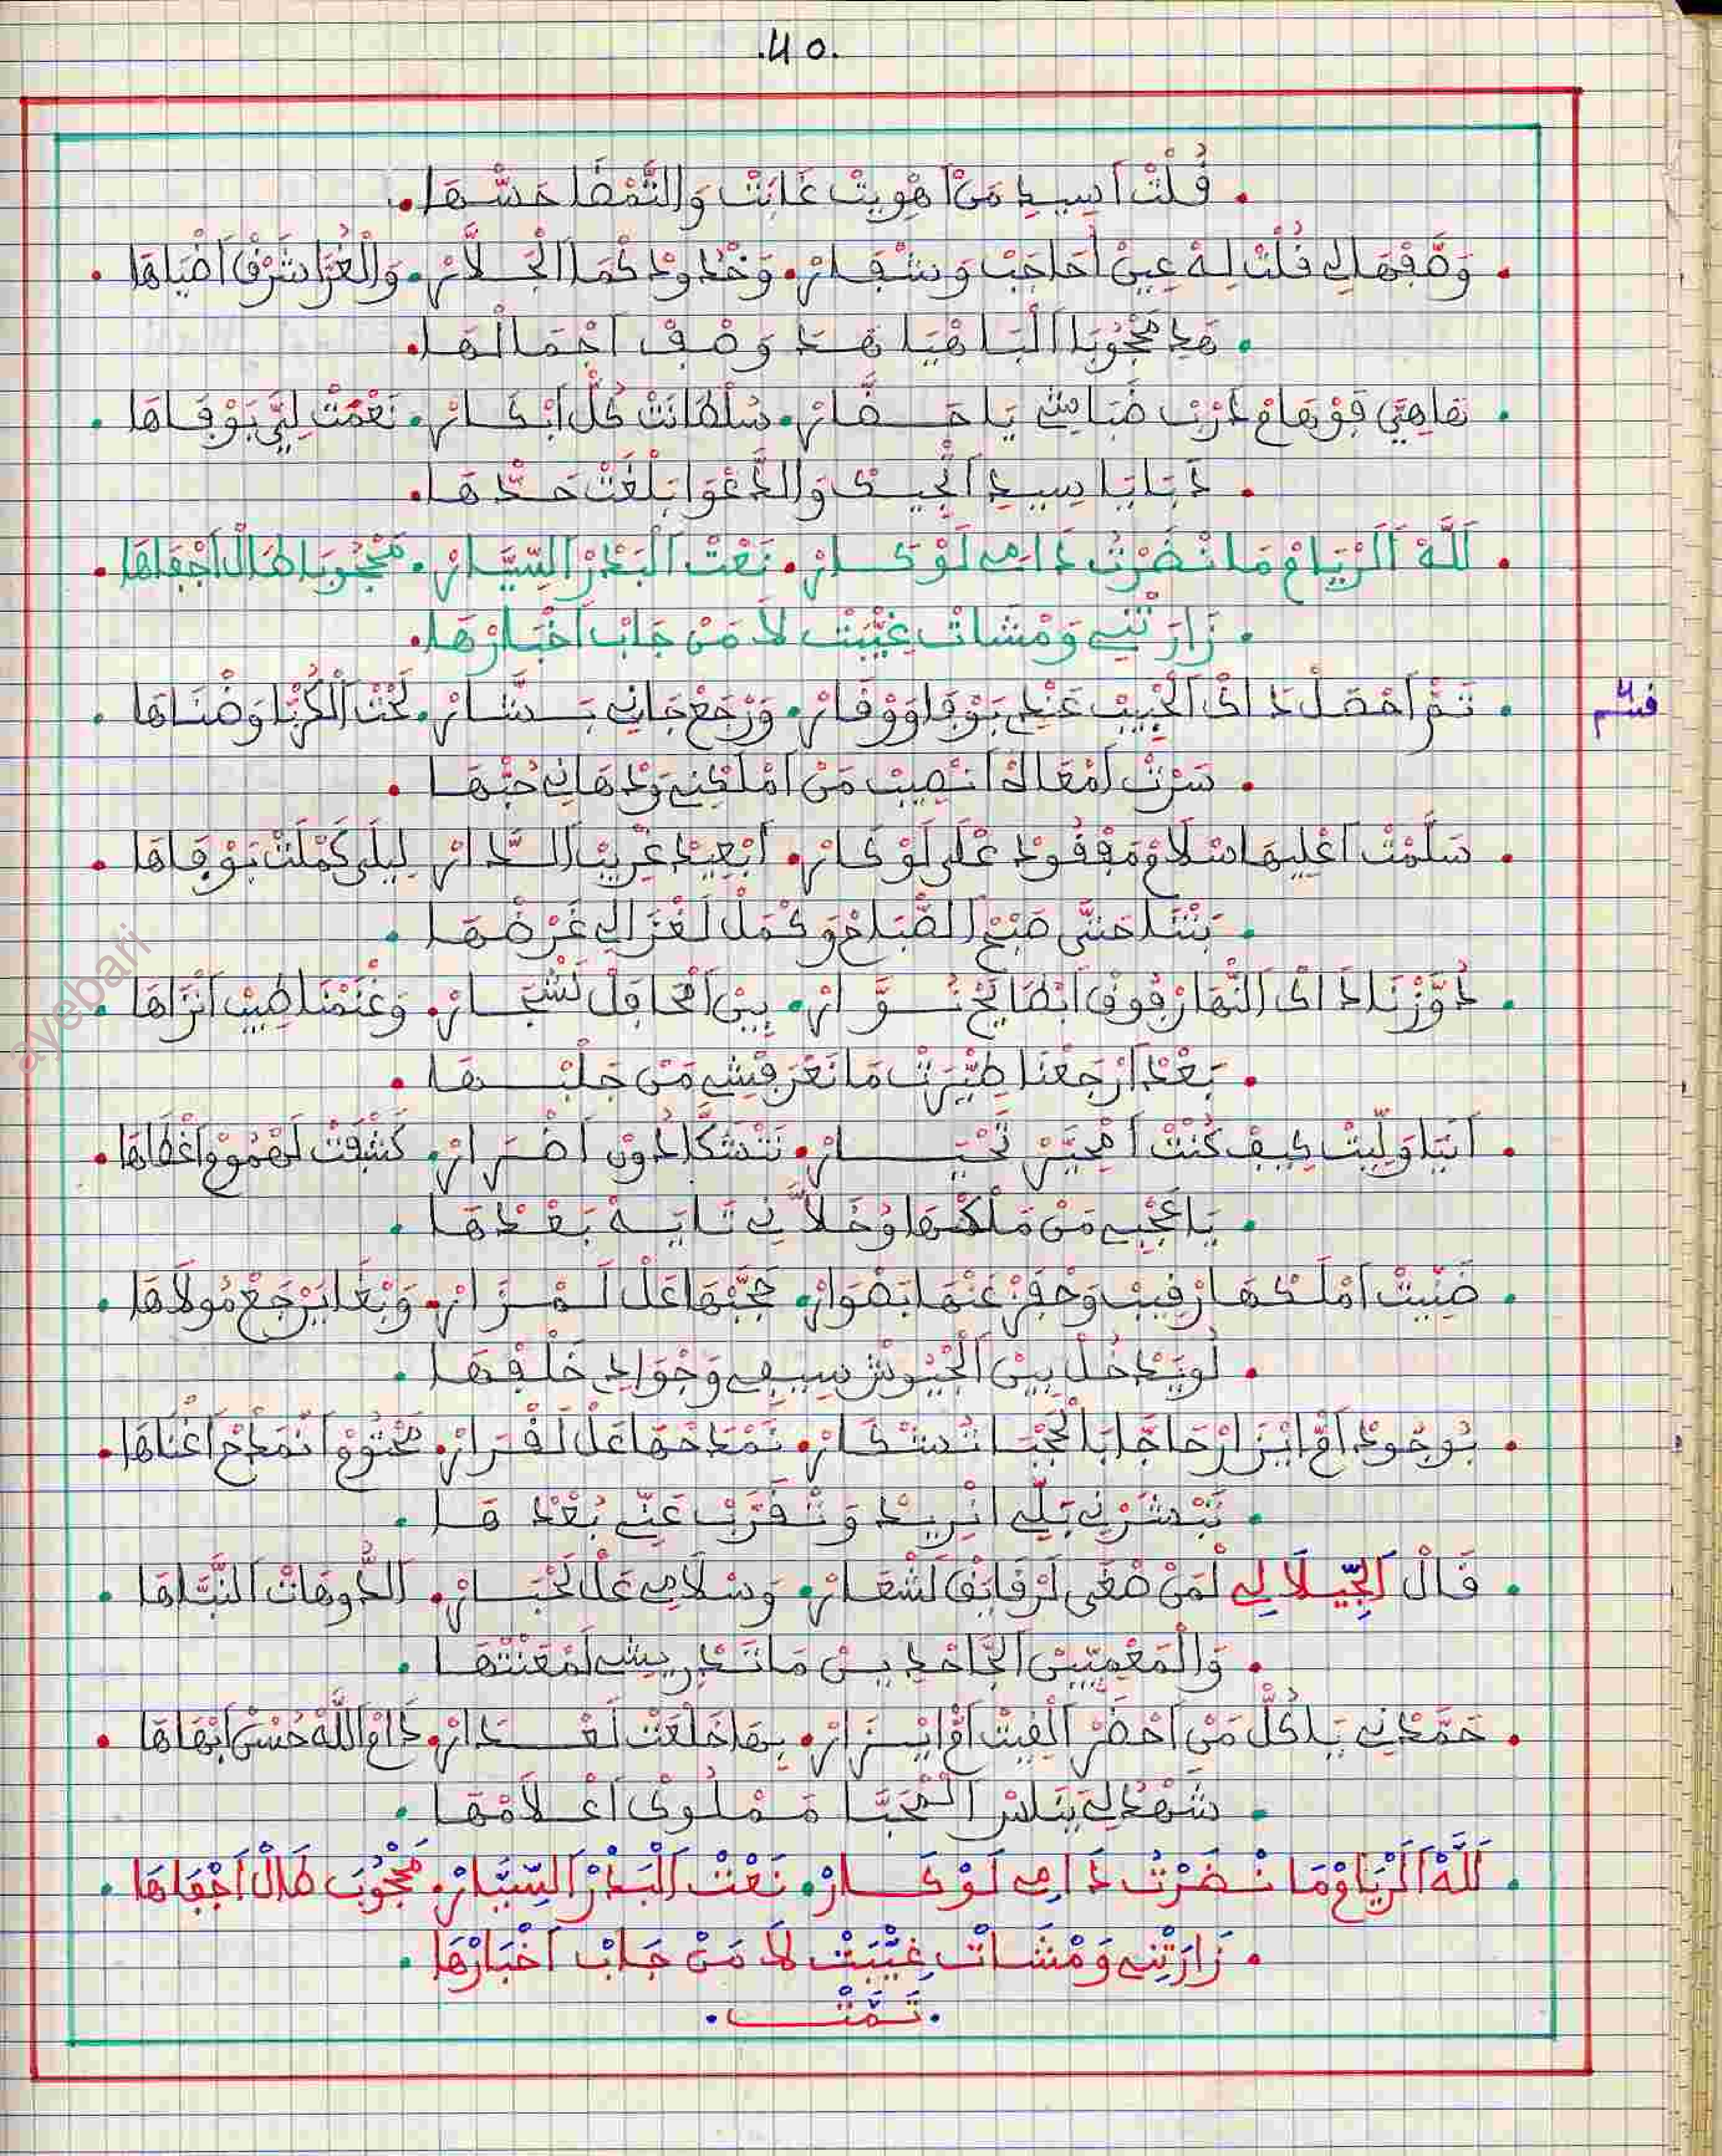 .40.
. فُلْتْ اَسِيدِ مَنْ اَهْوِيتْ غَابَتْ وَالتَّمْضَا حَسّْهَا.
. وَصَّفْهَا لِي فُلْتْ لِهْ عِينْ اُحَاجَبْ وَشْفَارْ. وَخْدُودْ كْمَا الْجَلَّارْ. وَالْغُرَّا شَرْقْ اَضْيَاهَا .
. هَدِ مَحْجُوبَا الْبَاهْيَا هَدَ وَصْفْ اَجْمَالْهَا.
. نَعَامْ دَرْبْ ضَبَاشِي يَا حَضَّارْ. سُلْطَانَتْ كُلّْ اَبْكَارْ. نَعْمَتْ لِيَّ بَوْفَاهَا .
. دَبَابَا سِيدِ الْجِيدْ وَالدَّعْوَا بَلْغَتْ حَدّْهَا.
. لَلَّهْ اَلَرْيَامْ مَا نْضَرْتُ دَامِي لَوْكَارْ. نَعْتْ الْبَدْرْ السِّيَّارْ. مَحْجُوبَا طَالْ اَجْفَاهَا.
. زَارَتْنِي وَمْشَاتْ غِيّْبَتْ لَا مَنْ جَابْ اَخْبَارْهَا.
فسم
. تَمّْ اَحْصَلْ دَاكْ الْحْبِيبْ عَنْدِ بَوْفَا وَوْقَارْ. وَرْجَعْ جَانِي بَشَّارْ. تَحْتْ الْكُرْبَا وَضْنَاهَا .
. سَرْتْ اَمْعَاهْ اَنْصِيبْ مَنْ اَمْلَكْنِي وَدْهَانِي حُبّْهَا .
. سَلَّمْتْ اَعْلِيهَا سْلَامْ مَفْقُودْ عْلَى لَوْكَارْ. اَبْعِيدْ غْرِيبْ الدَّارْ لِيلَى كَمْلَتْ بَوْفَاهَا .
. بَتْنَا حَتَّى صَبْحْ الصّْبَاحْ وَكْمَلْ لَغْزَالِي غَرْضْهَا .
. دُوَّزْنَا دَاكْ النّْهَارْ فُوقْ اَبْطَايَحْ نُوَّارْ. بِينْ اَمْحَافَلْ لَشْجَارْ. وَغْنَمْنَا طِيبْ اَنْزَاهَا .
. بَعْدْ اَرْجَعْنَا طِيّْرَتْ مَا نَعْرَفْشِي مَنْ جَلْبْهَا .
. اَنَيَا وَلِّيتْ كِيفْ كُنْتْ اَمْحَيَّرْ تَحْيَارْ. نَتْشَكَّا دُونْ اَضْرَارْ. كَشْفَتْ لَهْمُومْ اَغْطَاهَا.
. يَا عَجْبِي مَنْ مَلْكْهَا وُخَلَّانِي تَايَهْ بَعْدْهَا .
. ضَنِّيتْ اَمْلَكْهَا رْقِيبْ وَحْفَزْ عَنْهَا بَضْوَارْ. حَجَّبْهَا عَلْ لَمْزَارْ. وَبْغَا يَرْجَعْ مُولَاهَا .
. لُو يَدْخُلْ بِينْ الْجْيُوشْ سِيفِي وَجْوَادِ خَلْفْهَا .
. بُوجُودْ اَمّْ اِيزَارْ حَاجَّا بَالْحَجْبَا تُشْكَارْ. نَمْدَحْهَا عَلْ لَقْرَارْ. مَحْتُومْ اَنْمَدَحْ اَغْنَاهَا.
. تَبْشَرْنِي بَلِّي اَنْرِيدْ وَنْقَرَّبْ عَنِّي بُعْدْهَا .
. قَالْ الْجِّيلَالِي لْمَنْ صْغَى لَرْقَايَقْ لَشْعَارْ. وَسْلَامِي عَلْ لَحْبَارْ. الدُّوهَاتْ النَّبَّاهَا .
. وَالْمَعْمِيِّينْ الْجَّاحْدِينْ مَا تَدْرِيشِي لَمْعَنْتْهَا .
. حَمَّدْنِي يَا كُلّْ مَنْ اَحْضَرْ الْفِيتْ اَمّْ اِيزَارْ. بِهَا خَلْعَتْ لَعْدَارْ. دَامْ اَللَّهْ حُسْنْ اَبْهَاهَا .
. شَهْدُ لِي يَنَاسْ الْمْحَبَّا مَمْلُوكْ اَعْلَامْهَا .
. لَلَّهْ اَلَرْيَامْ مَا نْضَرْتُ دَامِي لَوْكَارْ. نَعْتْ الْبَدْرْ السِّيَّارْ. مَحْجُوبَ طَالْ اَجْفَاهَا .
. زَارَتْنِي وَمْشَاتْ غِيّْبَتْ لَا مَنْ جَابْ اَخْبَارْهَا .
.تَمَّتْ.
ayebari